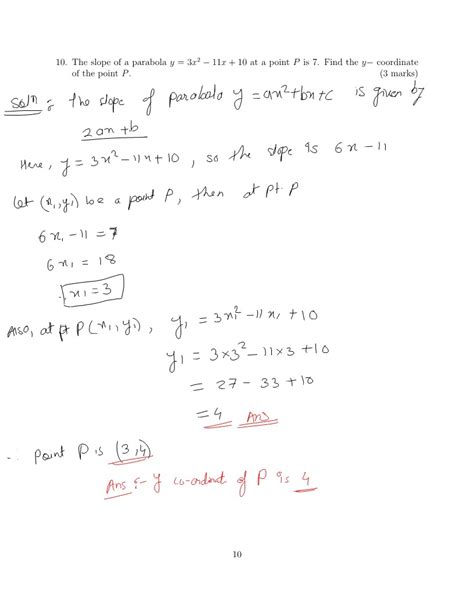 10. The slope of a parabola y = 3x² − 11x + 10 at a point P is 7. Find the y− coordinate
of the point P. (3 marks)
Solⁿ :- The slope of parabola y = ax²+bx+c is given by
2ax+b
Here, y = 3x²-11x+10, so the slope is 6x-11
Let (x₁,y₁) be a point P, then at pt. P
6x₁-11 = 7
6x₁ = 18
x₁ = 3
Also, at pt P(x₁,y₁), y₁ = 3x₁²-11x₁+10
y₁ = 3×3²-11×3+10
= 27-33+10
= 4 Ans
∴ point P is (3,4)
Ans :- y co-ordinat of P is 4
10